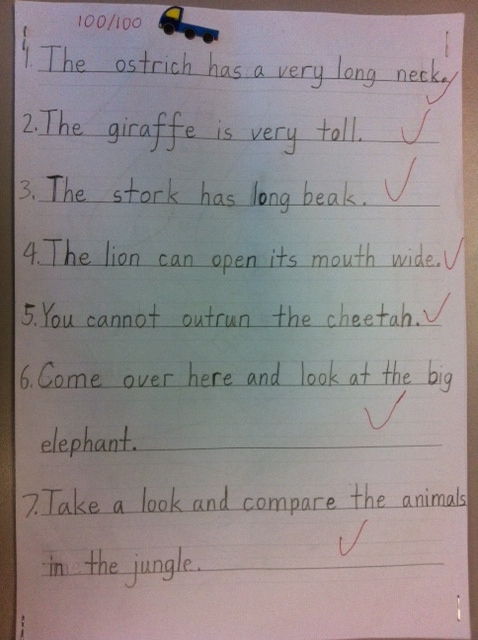 100/100
1. The ostrich has a very long neck.
2. The giraffe is very tall.
3. The stork has long beak.
4. The lion can open its mouth wide.
5. You cannot outrun the cheetah.
6. Come over here and look at the big
elephant.
7. Take a look and compare the animals
in the jungle.